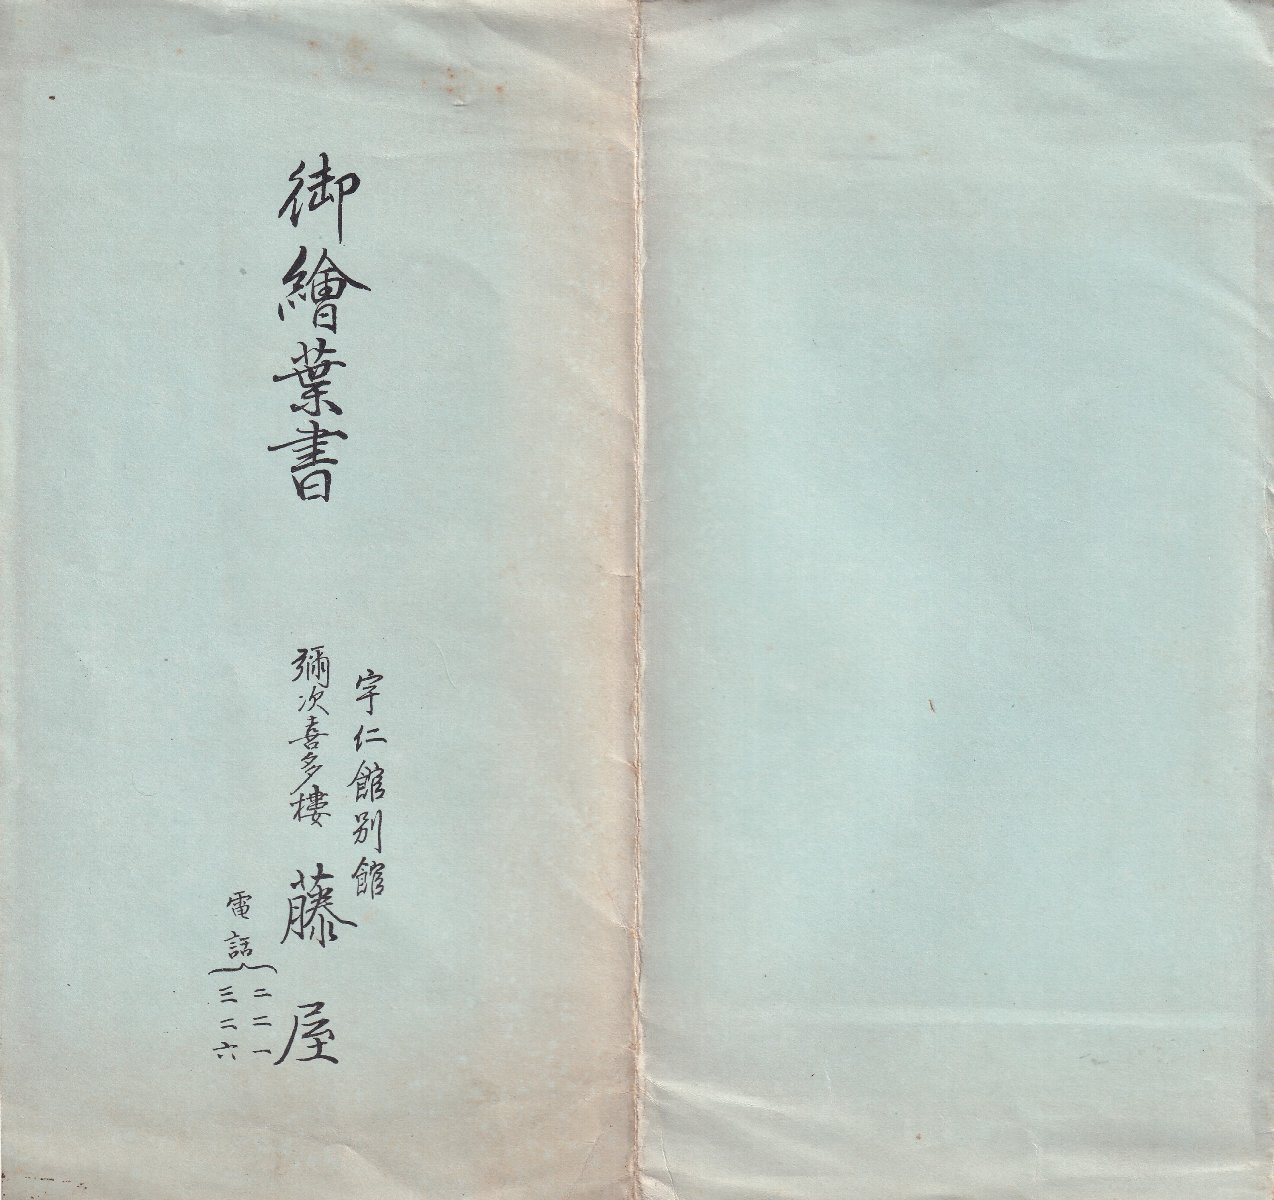 御繪葉書
宇仁館別館
彌次喜多樓 藤屋
電話
二二一
三二六